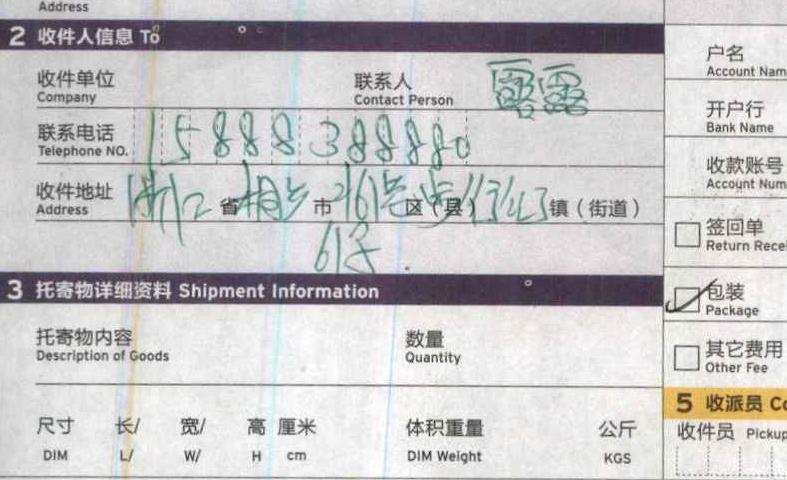 Address
2 收件人信息 To
收件单位
Company
联系人 露露
Contact Person
联系电话 15888388880
Telephone NO.
收件地址 浙江 省 桐乡 市 区(县) 镇(街道)
Address
61号
3 托寄物详细资料 Shipment Information
托寄物内容
Description of Goods
数量
Quantity
尺寸 长/ 宽/ 高 厘米
DIM L/ W/ H cm
体积重量 公斤
DIM Weight KGS
户名
Account Nam
开户行
Bank Name
收款账号
Account Num
签回单
Return Recei
包装
Package
其它费用
Other Fee
5 收派员 Co
收件员 Pickup